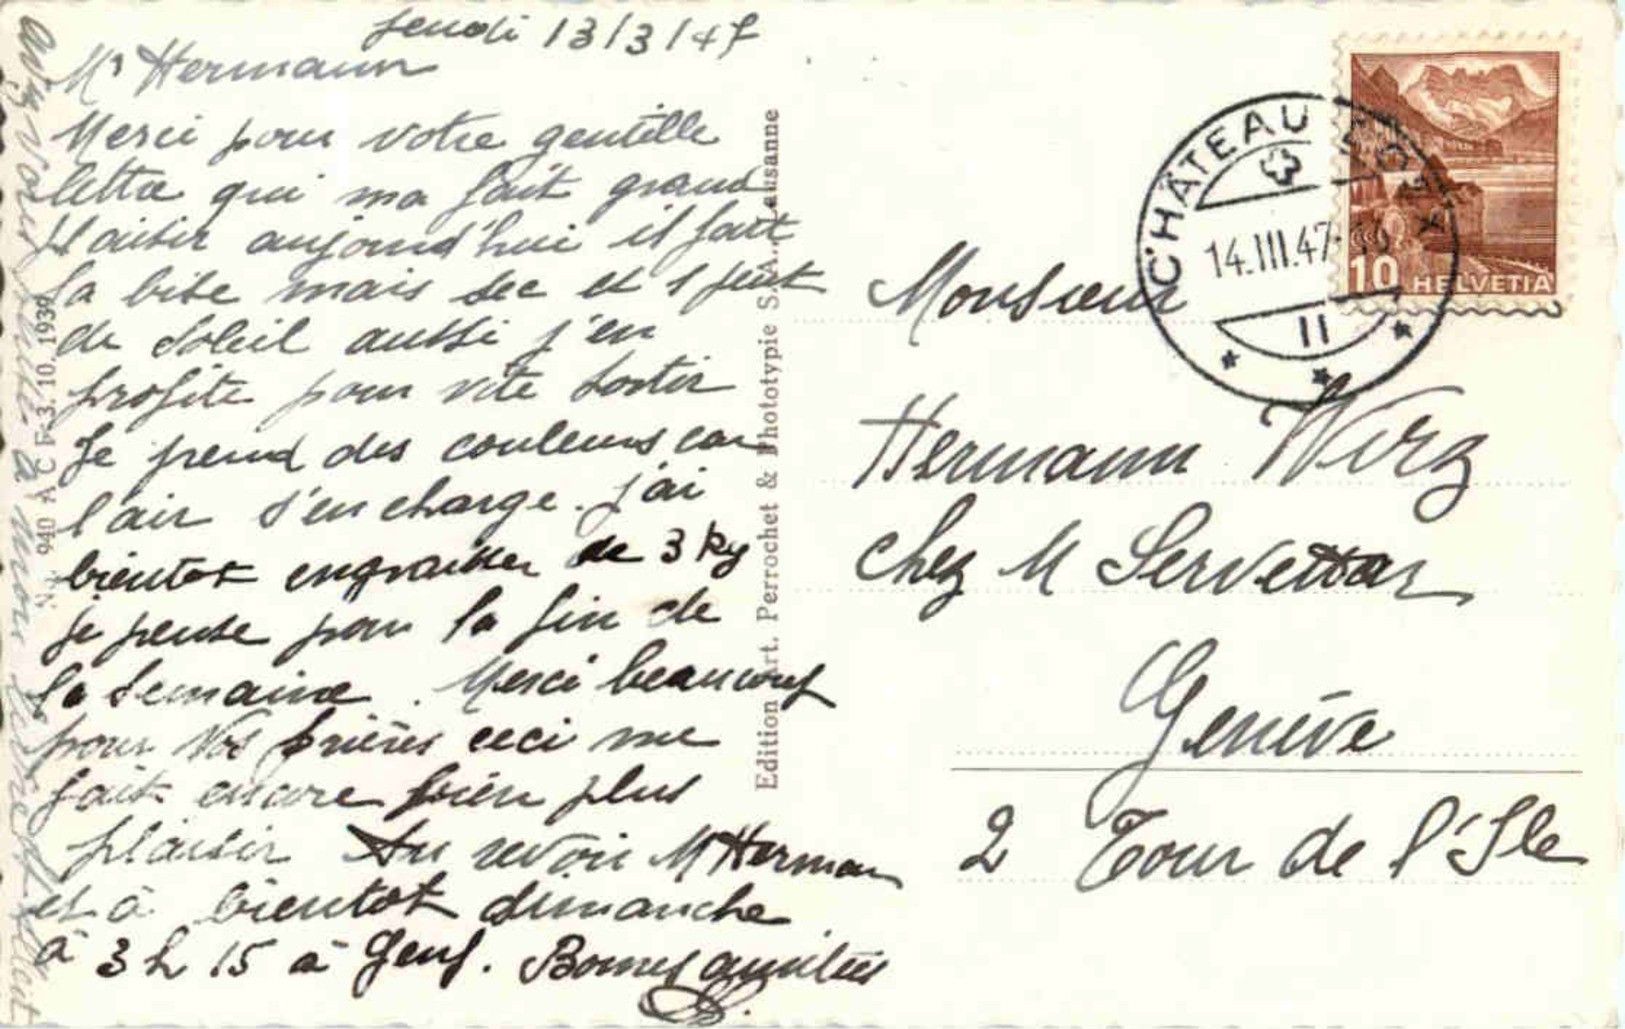 Jeudi 13/3/47
Mr Hermann
Merci pour votre gentille
lettre qui ma fait grand
plaisir aujourd'hui il fait
la bise mais sec et 1 petit
de soleil aussi j'en
profite pour vite sortir
Je prend des couleurs car
l'air s'en charge. j'ai
bientot engraisser de 3 kg
je pense pour la fin de
la semaine. Merci beaucoup
pour vos prières ceci me
fait encore bien plus
plaisir Au revoir M Herman
et à bientot dimanche
à 3 h 15 à Genf. Bonnes amitiés
avez vous
940 A C F 3. 10. 1939
Edition Art. Perrochet & Phototypie S.A., Lausanne
CHÂTEAU
14.III.47
II
10 HELVETIA
Monsieur
Hermann Wirz
chez M Servettaz
Genève
2 Tour de l'Ile